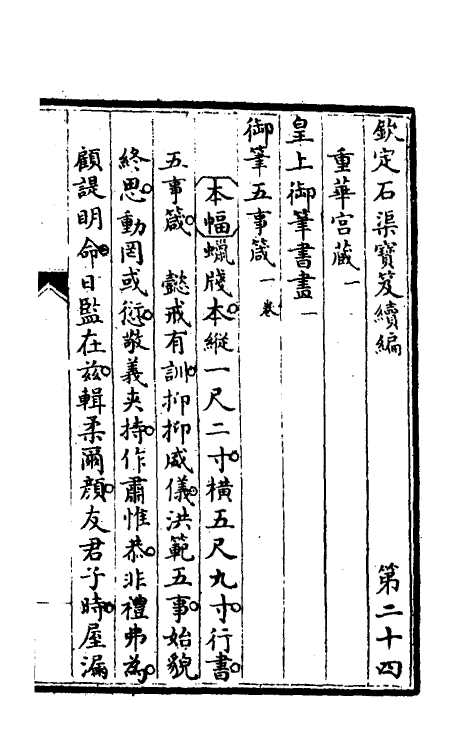 欽定石渠寶笈續編　第二十四
重華宮藏一
皇上御筆書畫一
御筆五事箴一卷
本幅蠟牋本縱一尺二寸橫五尺九寸行書
五事箴　懿戒有訓抑抑威儀洪範五事始貌
終思動罔或愆敬義夾持作肅惟恭非禮弗為
顧諟明命日監在兹輯柔爾顔友君子時屋漏